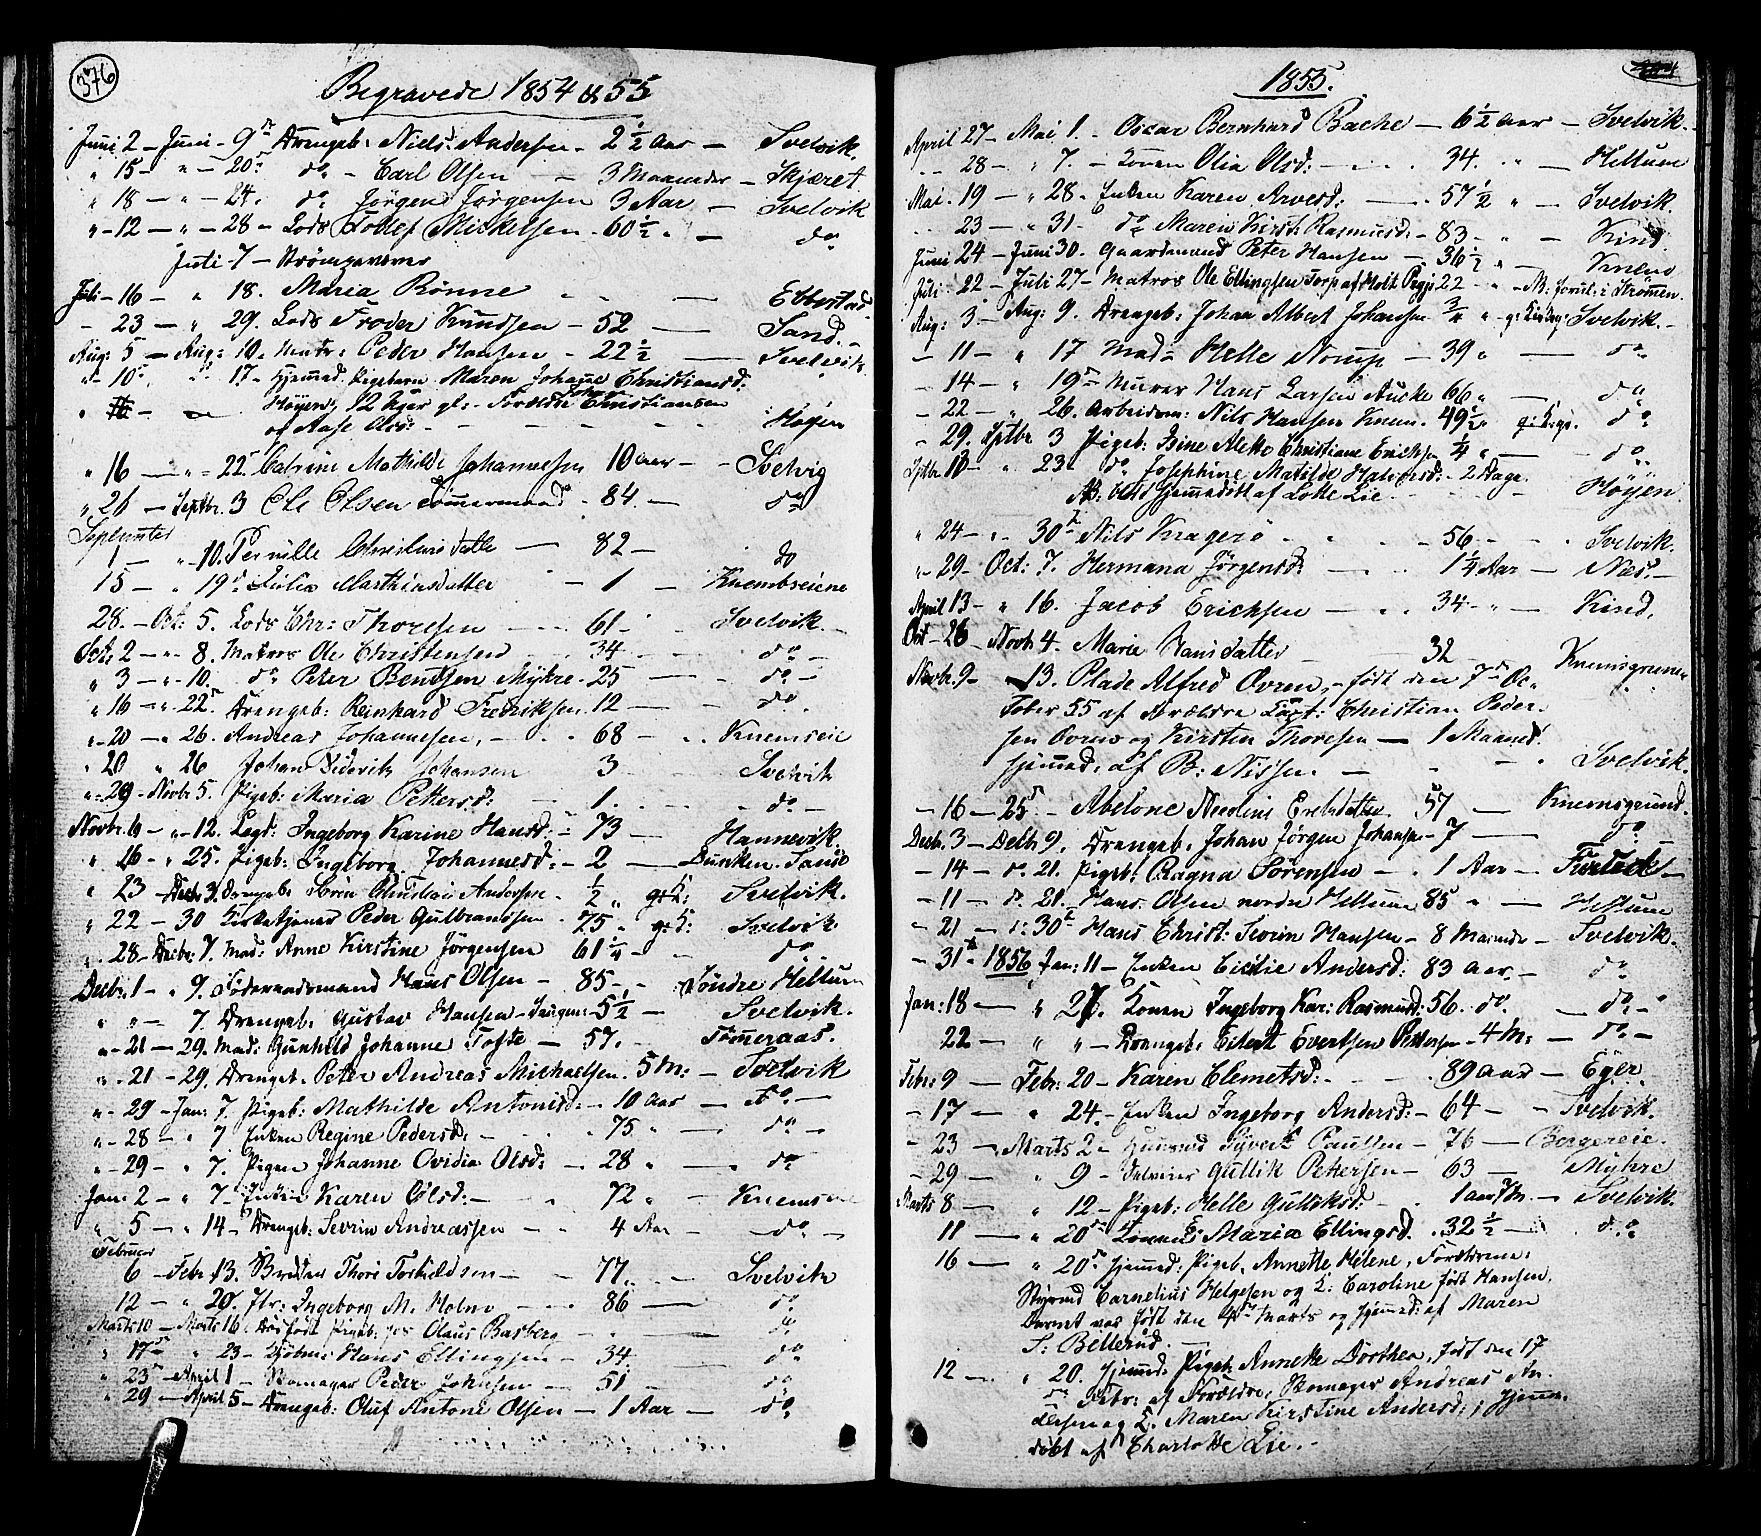 376
Begravede 1854 & 55
Juni 2 - Juni - 9de Drengeb: Niels Andersen - 2 1/2 Aar - Svelvik.
" 15 - " - 20de do - Carl Olsen - 3 Maaneder - Skjæret
" 18 - " - 24. do Jørgen Jørgensen 3 Aar - Svelvik
" - 12 - " - 28 - Lods Tollef Mickelsen - 60 1/2 " - do
Juli - 7 -
Juli - 16 - " 18. Maria Rønne - Ebbestad
- 23 - " 29. Lods Froder Knudsen - 52 - Sand. -
Aug: 5 - Aug: 10. Matr: Peder Hansen - 22 1/2 - Svelvik
" - 10 - " 17 - Hjemmed. Pigebarn Maren Johanne Christiansd.
Høyen, 12 Uger gl: - Forældre Johan Christiansen
og Aase Olsd: - Høyen
" 16 - " - 22 Catrine Mathilde Johannesen 10 Aar - Svelvig
" 26 - Septbr. 3 Ole Olsen Tømmermand - 84. - do
September
1 - " - 10. Pernille Christiansdatter - 82 - do
15 - " 19de Julia Marthinsdatter - 1 - Knembseiene
28. - Oct: 5. Lods Chr: Thoresen - 61 - Svelvik. -
Oct: 2 - " - 8. Matros Ole Christensen - 34 - do -
" 3 - " - 10. do Peter Bentsen Myhre - 25 - do -
" 16 - " 22de Drengeb: Reinhard Fredriksen. 12 - do.
" - 20 - " 26. Andreas Johannesen, - 68 - Knemseie
" 20 " 26 Johan Diderik Johansen 3 - Svelvik
" - 29 - Novbr 5. Pigeb: Maria Pettersd: 1 - do -
Novbr. 6 - " - 12. Lægd: Ingeborg Karine Hansd: - 73 - Hannevik.
" 16 - " 25. Pigeb: Ingeborg Johannesd: - 2 - Dunken. Sand
" 23 - Decb. 3. Drengeb: Søren Christian Andersen - 1/2 " Svelvik.
" 22 - 30 Kirketjener Peder Gulbrandsen - 75 " Svelvik.
" 28 - Decbr. 7. Mad: Anne Kirstine Jørgensen 61 1/4 - do -
Decbr. 1 - " 9. Føderaadsmand Hans Olsen - 85 - Søndre Hellum
" " - 7. Drengeb. Gustav Hansen - 5 1/2 - Svelvik.
" - 21 - 29. Mad: Gunhild Johanne Tofte - 57. - Tømeraas.
" - 21 - 29. Drengeb. Peter Andreas Michaelsen. 5 M: - Svelvik
" - 29 - Jan: 7. Pigeb: Mathilde Antonisd: - 10 Aar - do -
" - 28 - " 7 Enken Regine Pedersd. - 75 " - do -
" - 29 - " 7. Pigen Johanne Ovidia Olsd: - 28 " - do
Jan: 2 - " 7 - Enken Karen Olsd: - 72 " - Knems
" 5 - " 14 - Drengeb: Severin Andreassen - 4 Aar - do -
Februar
6 - Febr. 13. Thore Torkildsen - 77. - Svelvik
12 - " 20. Ingeborg M. Holm - 86 - do
Marts 10 - Marts 16. Dødfødt Pigeb: Olaus Basberg - do
" 17de " 23 - Hans Ellingsen - 34 - do
" 23de - April 1 - Skomager Peder Johnsen - 51 - do
" 29 - April 5 - Drengeb: Oluf Antoni Olsen - 1 Aar - do.
1855.
April 27 - Mai 1. - Oscar Bernhard Bache - 6 1/2 Aar - Svelvik.
28 - " 7. - Konen Olia Olsd: - 34. " - Hellum
Mai. 19 - " 28. Enken Karen Arvesd: - 57 1/2 " - Svelvik.
23 - " 31 - do Maren Kirst: Rasmusd: - 83 - " - Kind
Juni 24 - Juni 30. Gaardmand Peter Hansen - 36 1/2 " - Knem
Juli - 22 - Juli 27 - Matros Ole Ellingsen 22 - " - Strømmen.
Aug: 3 - Aug: 9. Drengeb: Johan Albert Johansen 3/4 " - Svelvik. -
- 11 - " 17 Mad: Helle Norup - 39 " - do.
- 14 - " 19de Murer Hans Larsen Aucke 66 " - do
- 22 - " 26. Arbeidsm: Nils Hansen Knem. 49 1/2 " do.
- 29. Septbr. 3 Pigeb: Christiane Erichsen 1/4 " - do.
Septbr. 10 - " 23 - do Josephine Matilde - 2 Dage.
NB: blev hjemmedøbt af Lotte Lie. - Høyen
" 24 - " 30de Nils Kragerø - 56 - Svelvik.
" - 29 - Oct: 7. Hermana Jørgensd: - 1 1/4 Aar - Næs. -
April 13 - " 16. Jacob Erichsen - 34 - " - Kind.
Oct - 26 Novbr 4. Maria Hansdatter - 32 - Knemsgrunn
Novbr. 9 - 13. Plade Alfred Ovren, - født den 7de Oc-
tober 55 af Forældre Christian Peder-
sen Ovren og Kirsten Thoresen - 1 Maaned.
hjemmd. af B: Nissen. - Svelvik.
- 16 - 25de - Abelone 57 - Knemsgrund.
Decbr. 3 - Decbr 9. Drengeb. Johan Jørgen Johansen - 7 - do
- 14 - do. 21. Pigeb: Ragna Sørensen - 1 Aar -
- 11 - do. 21. Hans Olsen nordre Hellum 85 " - Hellum
- 21 - do: 30te Hans Christ: Severin Hansen - 8 Maaneder - Svelvik.
- 31te 1856 Jan: 11 - Enken Cicilie Andersd: 83 Aar. - do
Jan: 18 - " 27. Konen Ingeborg Kar: Rasmusd: 56. do - do -
22 - " " - Drengeb: Eilert Evertsen Pettersen - 4 M: - do -
Febr: 9 - Febr: 20 - Karen Clemetsd: - 89 Aar - Eger
- 17 - " 24. - Enken Ingeborg Andersd: - 64 - Svelvik.
- 23 - Marts 2 - Huusmd Syvert Paulsen - 76 - Bergereie.
- 29 - " 9 - Gullik Pettersen - 63 - Myhre
Marts 8 - " 12 - Pigeb: Helle Gulliksd: - 1 aar 7 M. - Svelvik.
11 - " 20de Konen E: Maria Ellingsd. 32 1/2 - do
16 - " 20de Hjemmd: Pigeb. Annette Helene, Forældrene:
Styrmd Cornelius Helgesen og K: Caroline født Hansen.
Barnet var født den 4de Marts og hjemmd: af Maren
S: Bellerud. -
12 - " 20. Hjemmd. Pigeb: Anneke Dorthea, født den 17
de Febr: af Forældre, Skomager Andreas An-
dersen og K. Maren Kirstine Andersd: ; hjemme-
døbt af Charlotte Lie. -